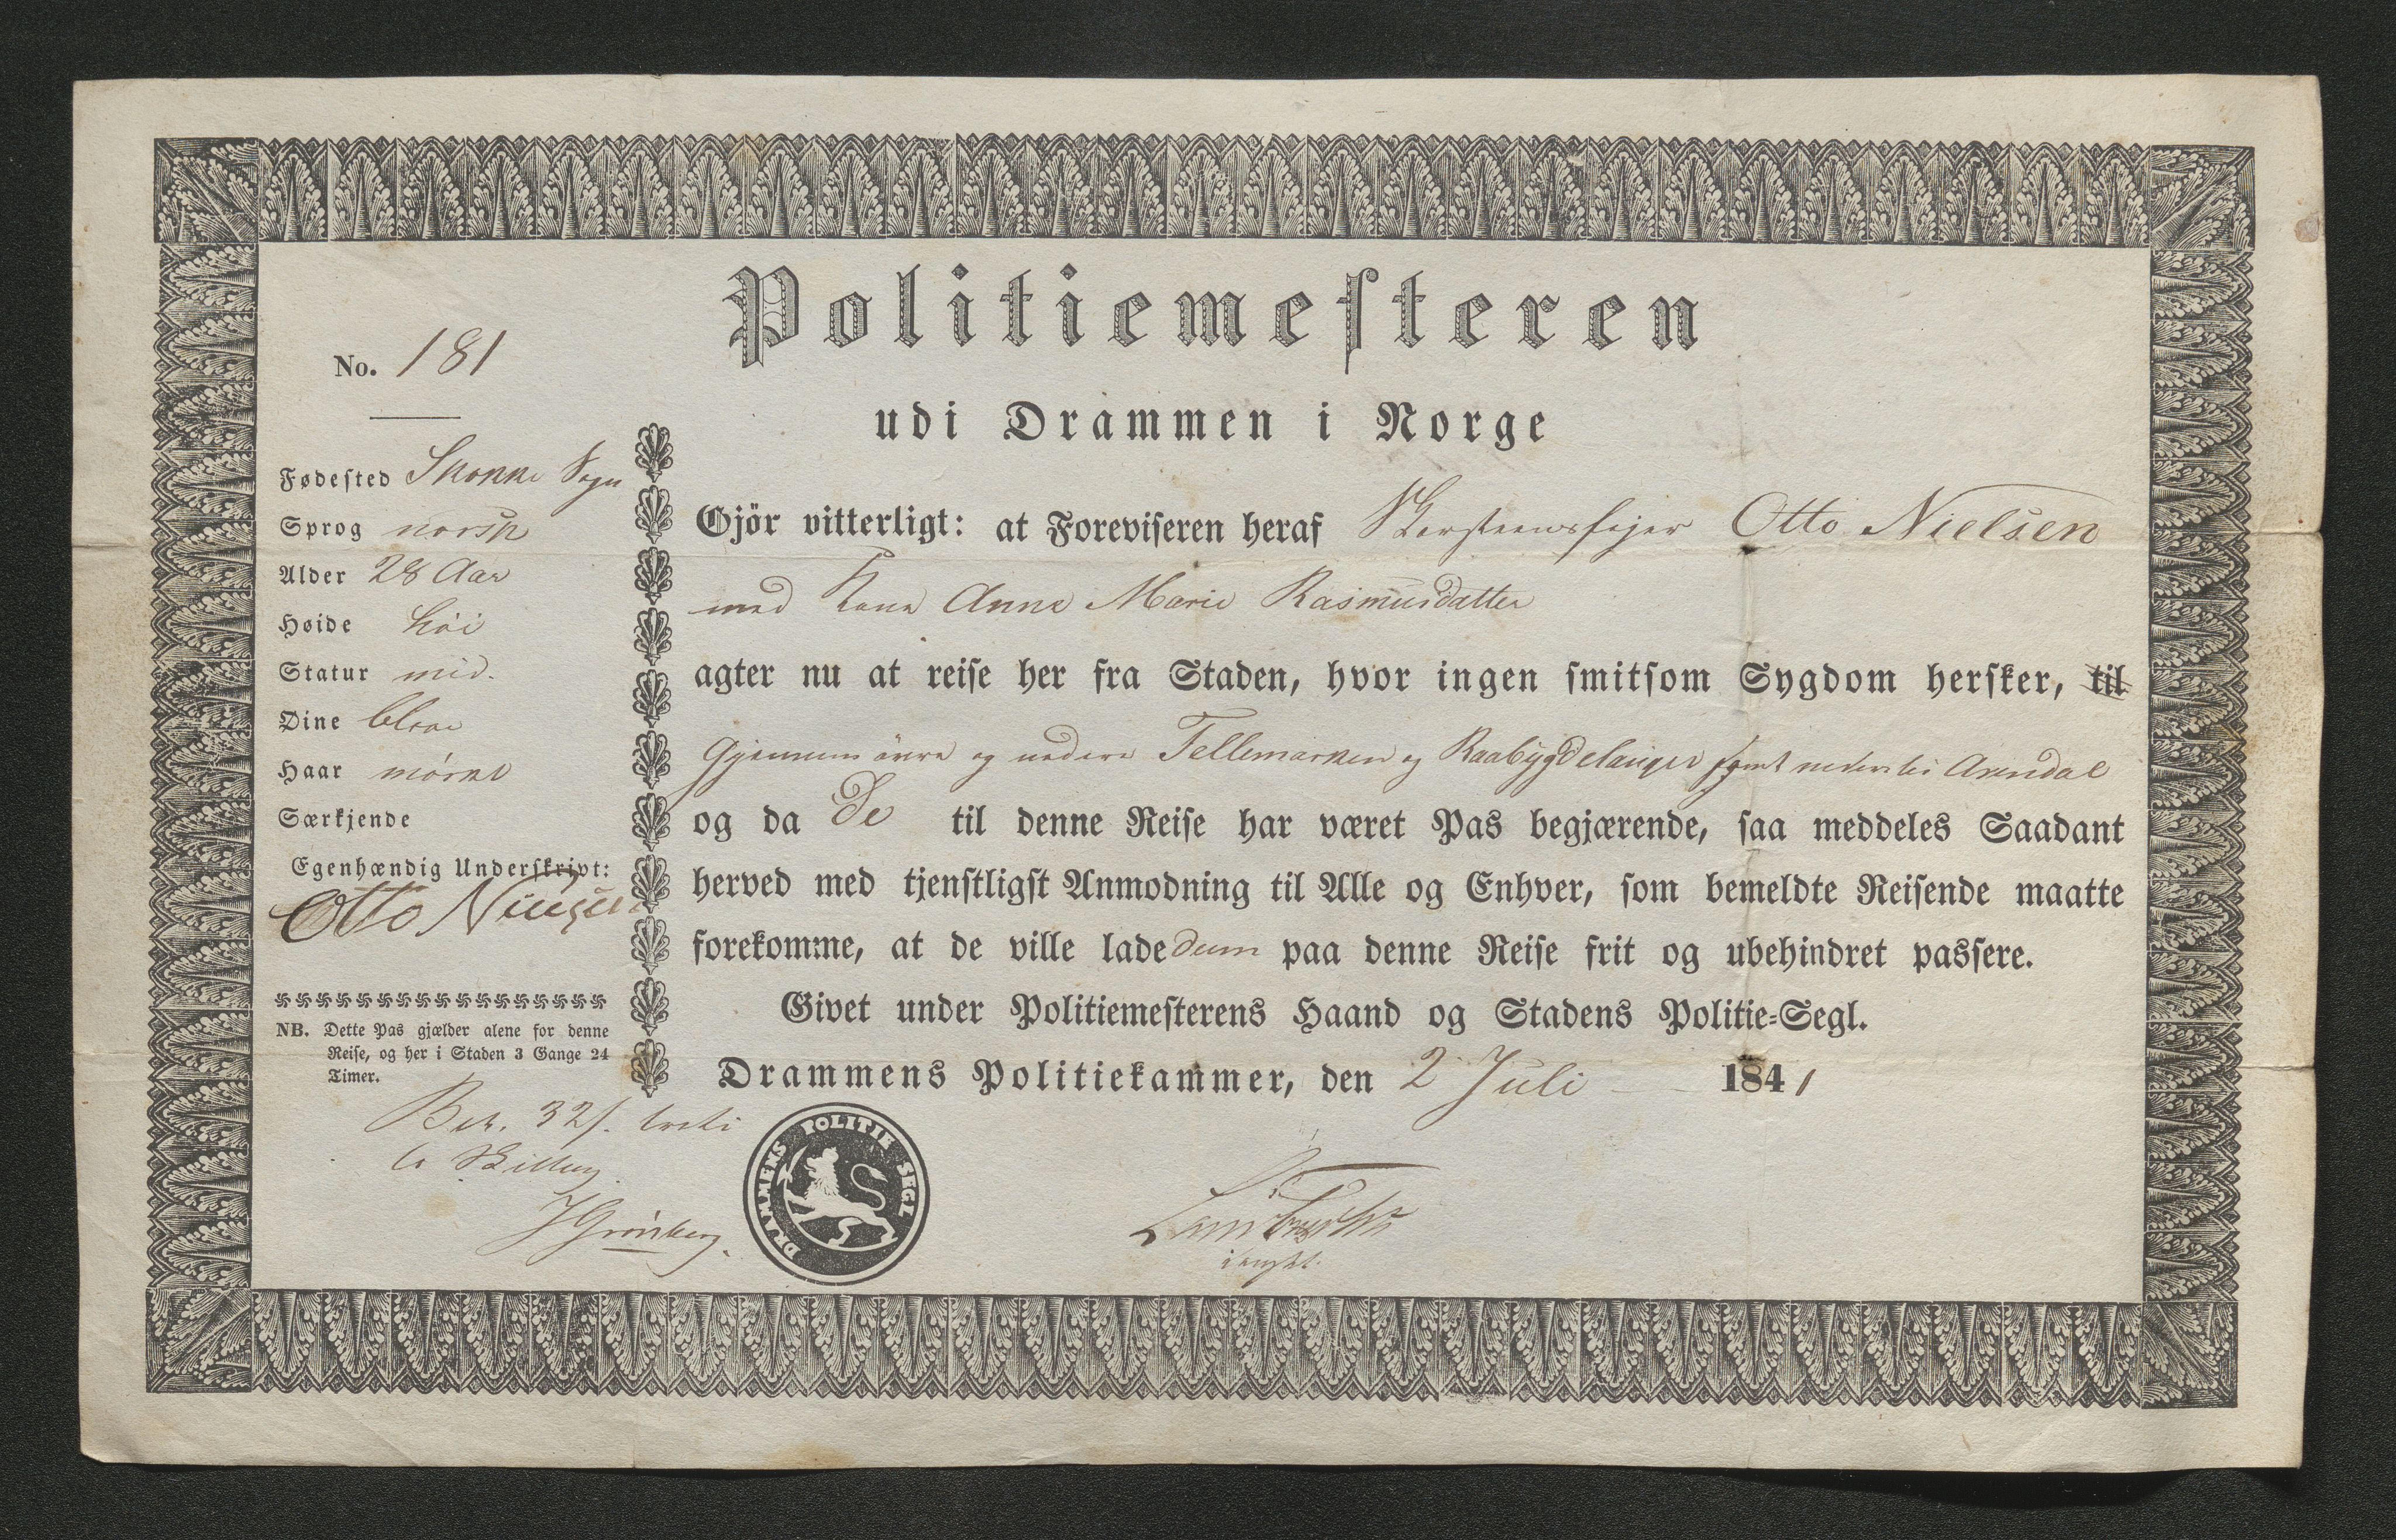 Politiemesteren
udi Drammen i Norge
No. 181
Fødested Skonne Sogn
Sprog norsk
Alder 28 Aar
Høide høi
Statur mid.
Øine blaae
Haar mørkt
Særkjende
Egenhændig Underskrivt:
Otto Nielsen
NB. Dette Pas gjælder alene for denne
Reise, og her i Staden 3 Gange 24
Timer.
Bet. 32 s.
Skilling
Gjör vitterligt: at Foreviseren heraf Skorsteensfejer Otto Nielsen
med Kone Anne Marie Rasmusdatter
agter nu at reise her fra Staden, hvor ingen smitsom Sygdom hersker, til
Gjennem övre og nedere Tellemarken og Raabygdelauget samt Arendal
og da De til denne Reise har været Pas begjærende, saa meddeles Saadant
herved med tjenstligst Anmodning til Alle og Enhver, som bemeldte Reisende maatte
forekomme, at de ville lade dem paa denne Reise frit og ubehindret passere.
Givet under Politiemesterens Haand og Stadens Politie-Segl.
Drammens Politiekammer, den 2 Juli 1841
DRAMMENS POLITIE SEGL